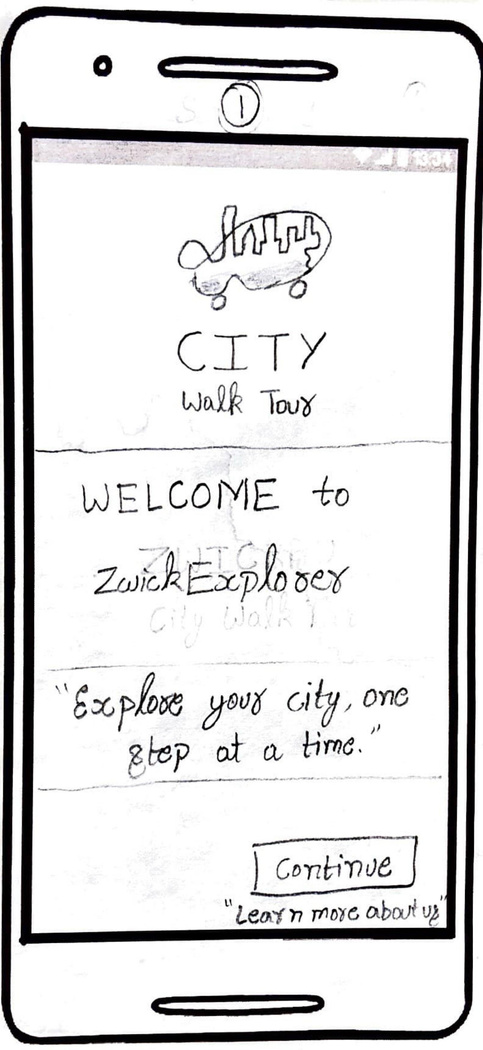 1
CITY
Walk Tour
WELCOME to
ZwickExplorer
"Explore your city, one
step at a time."
Continue
"Learn more about us"